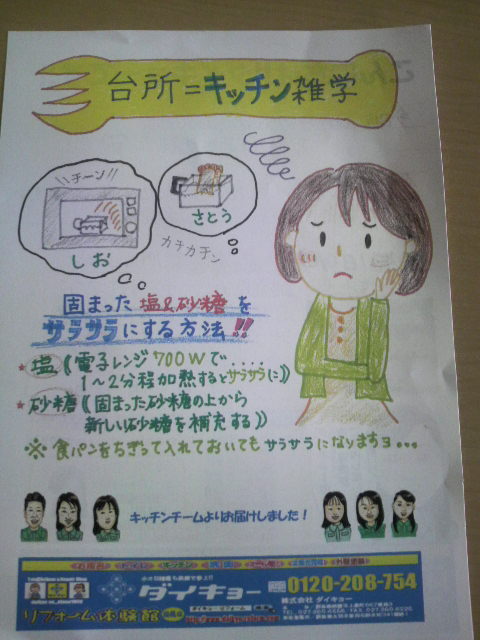 台所=キッチン雑学
\\チーン!!/
しお
さとう
カチカチン
固まった塩&砂糖を
サラサラにする方法!!
★塩((電子レンジ700Wで....
1~2分程加熱するとサラサラに))
★砂糖((固まった砂糖の上から
新しい砂糖を補充する))
※食パンをちぎって入れておいてもサラサラになりますョ...
キッチンチームよりお届けしました!
ダイキョー
0120-208-754
リフォーム体験館
株式会社 ダイキョー